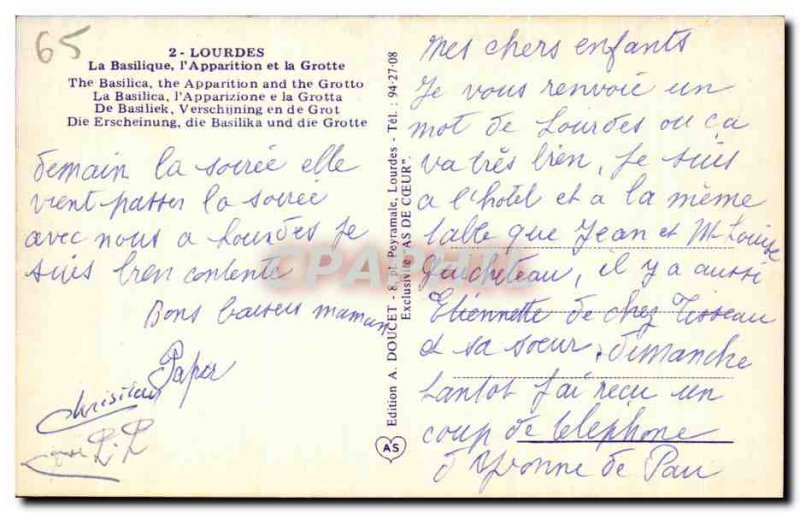 65
2 - LOURDES
La Basilique, l'Apparition et la Grotte
The Basilica, the Apparition and the Grotto
La Basilica, l'Apparizione e la Grotta
De Basiliek, Verschijning en de Grot
Die Erscheinung, die Basilika und die Grotte
Mes chers enfants
Je vous renvoie un
mot de Lourdes ou ça
va très bien, Je suis
a l'hotel et a la même
table que Jean et M Louise
, il y a aussi
Etiennette de chez Tisseau
et sa soeur, dimanche
tantot j'ai reçu un
coup de telephone
d'Yvonne de Pau
demain la soirée elle
vient passer la soirée
avec nous a Lourdes Je
suis bien contente
Bons baisers maman
Papa
Christian
L. L
Edition A. DOUCET - 8, pl. Peyramale, Lourdes - Tél. : 94-27-08
Exclusivité "AS DE CŒUR"
AS
CPAPHIL